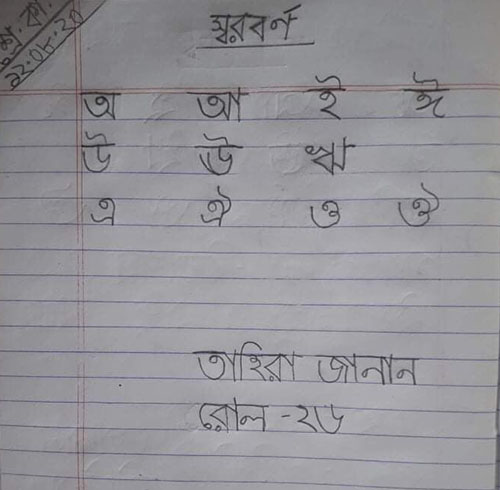 শ্রে. কা.
২২.০৮.২০
স্বরবর্ণ
অ আ ই ঈ
উ ঊ ঋ
এ ঐ ও ঔ
তাহিরা জানান
রোল -২৬